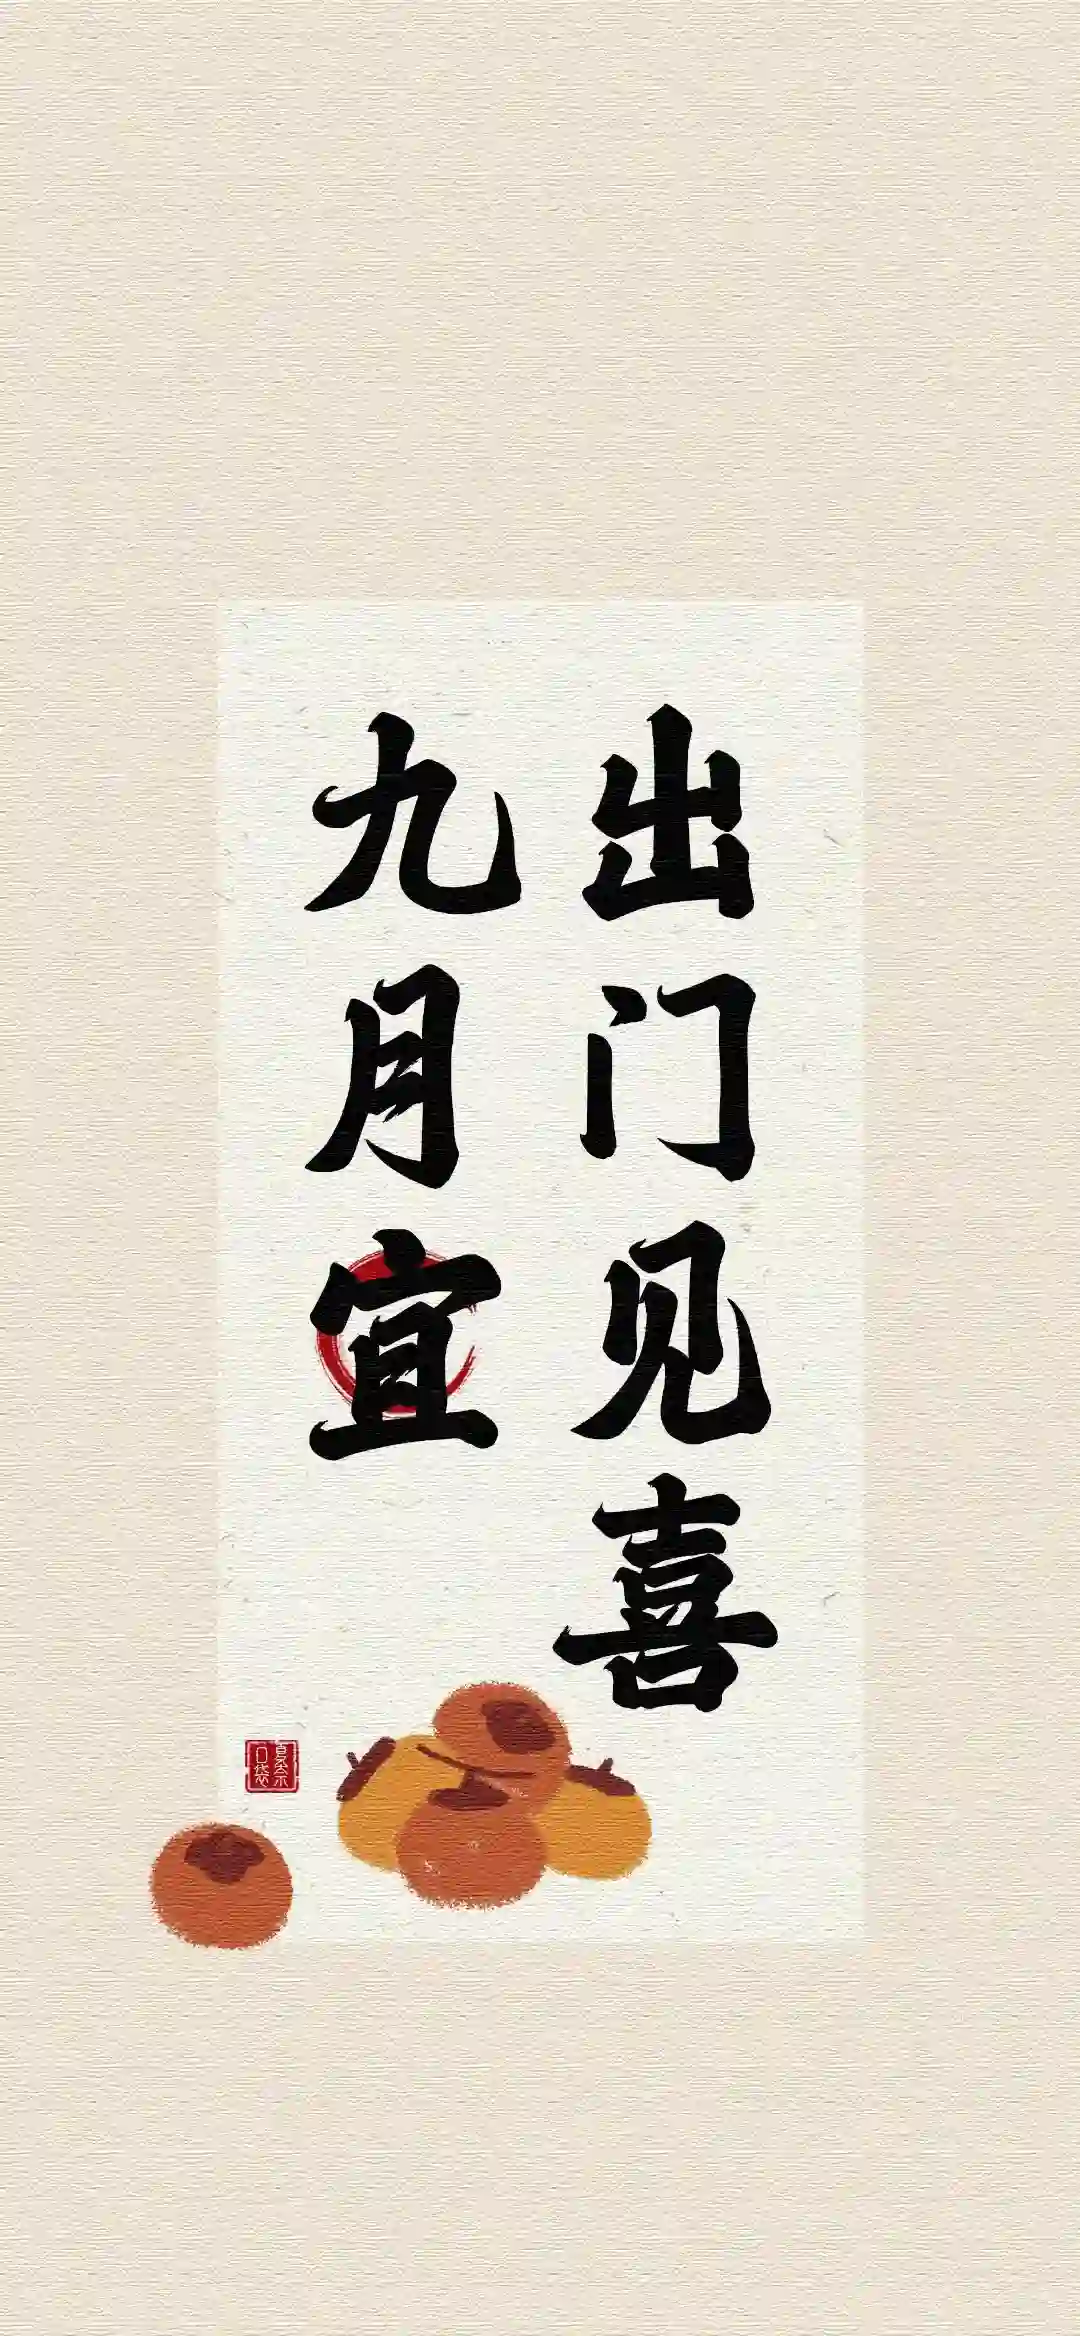 九月宜
出门见喜